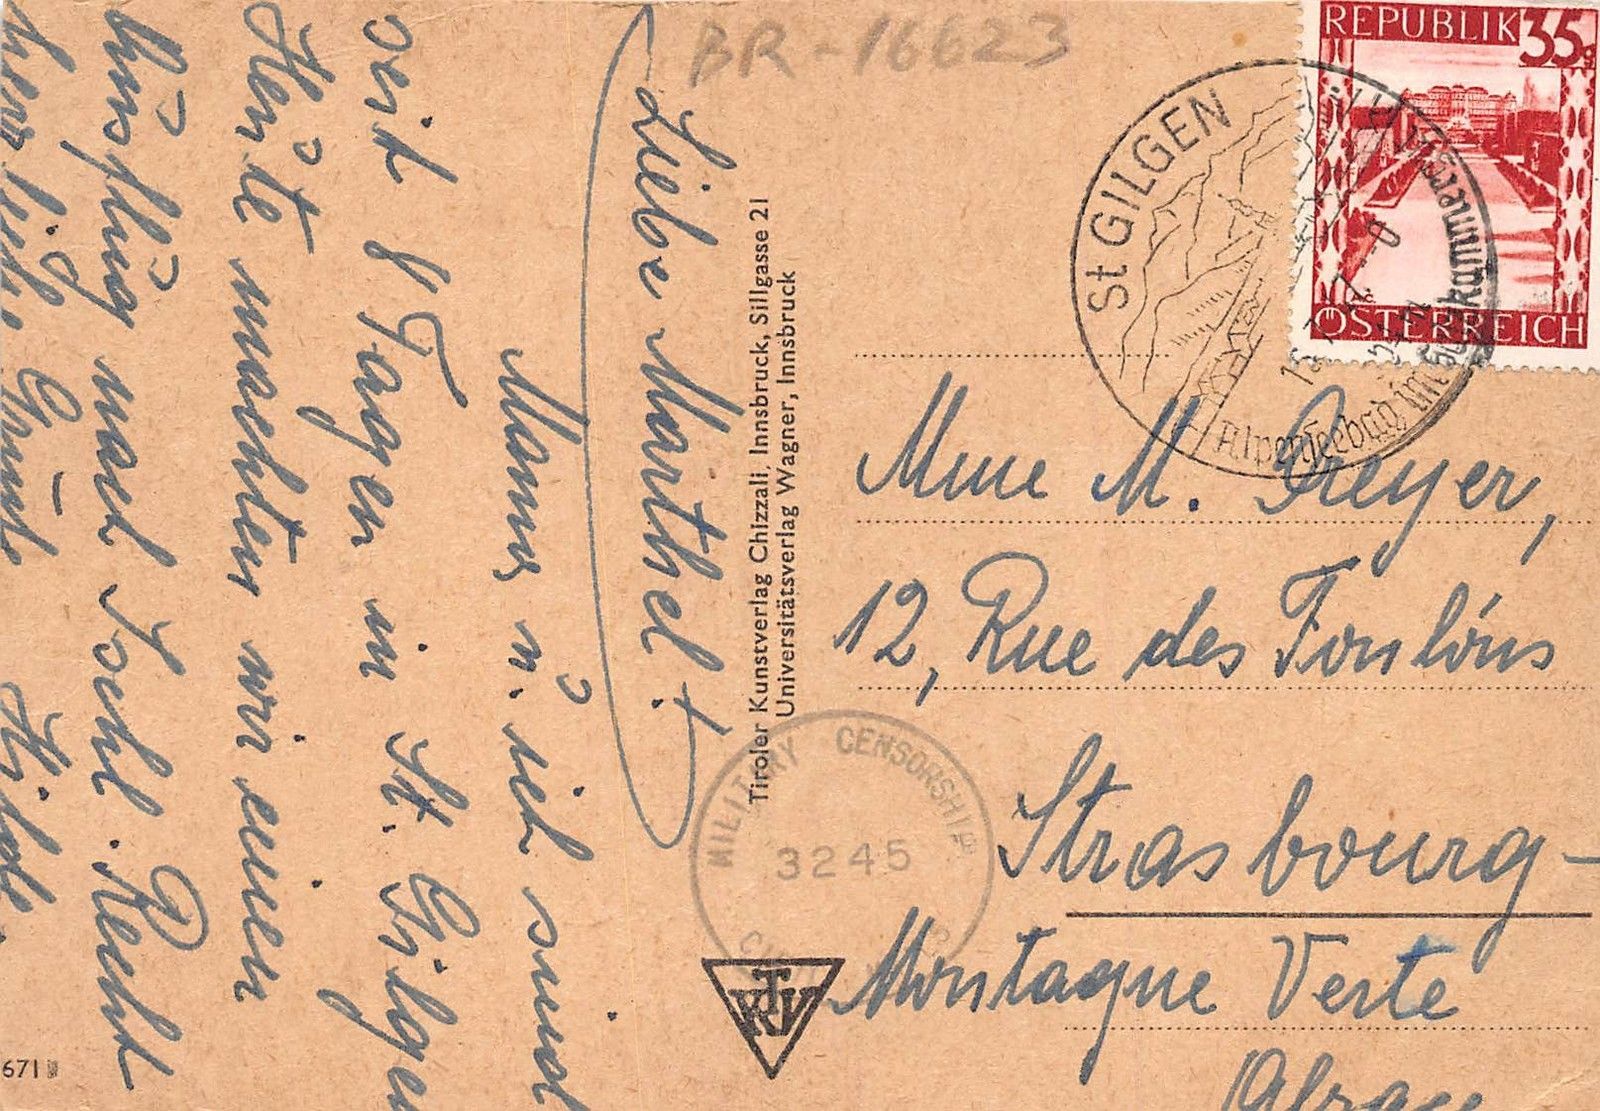 Liebe Marthel!
Mamy u. ich sind
seit 8 Tagen in St. Gilgen
Heute machten wir einen
Ausflug nach Ischl. Recht
herzliche Grüße
BR-16623
Tiroler Kunstverlag Chizzali, Innsbruck, Sillgasse 21
Universitätsverlag Wagner, Innsbruck
REPUBLIK 35g
ÖSTERREICH
St GILGEN
Alpenseebad im Salzkammergut
Mme M. Greyer,
12, Rue des
Strasbourg-
Montagne Verte
MILITARY CENSORSHIP
3245
TKV
671